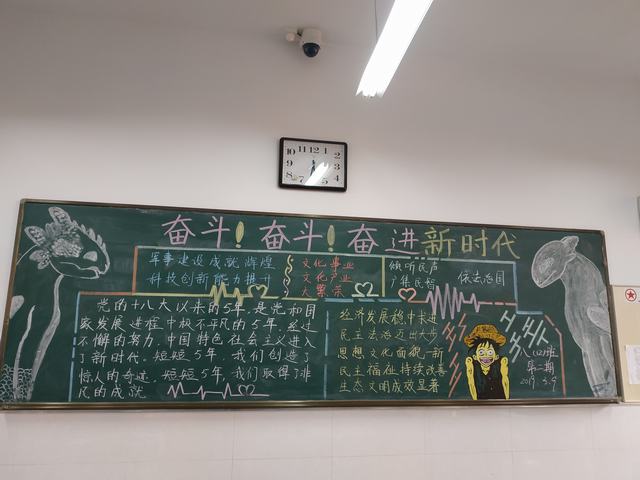 奋斗!奋斗!奋进新时代
军事建设成就辉煌
科技创新能力提升
文化事业
文化产业
大繁荣
倾听民声
广集民智
依法治国
党的十八大以来的5年,是党和国
家发展进程中极不平凡的5年。经过
不懈的努力,中国特色社会主义进入
了新时代。短短5年,我们创造了
惊人的奇迹。短短5年,我们取得了非
凡的成就
经济发展稳中求进
民主法治迈出大步
思想文化面貌一新
民主福祉持续改善
生态文明成效显著
八(12)班
第二期
2019.3.9
10 11 12 1 2
9 3
8 4
5